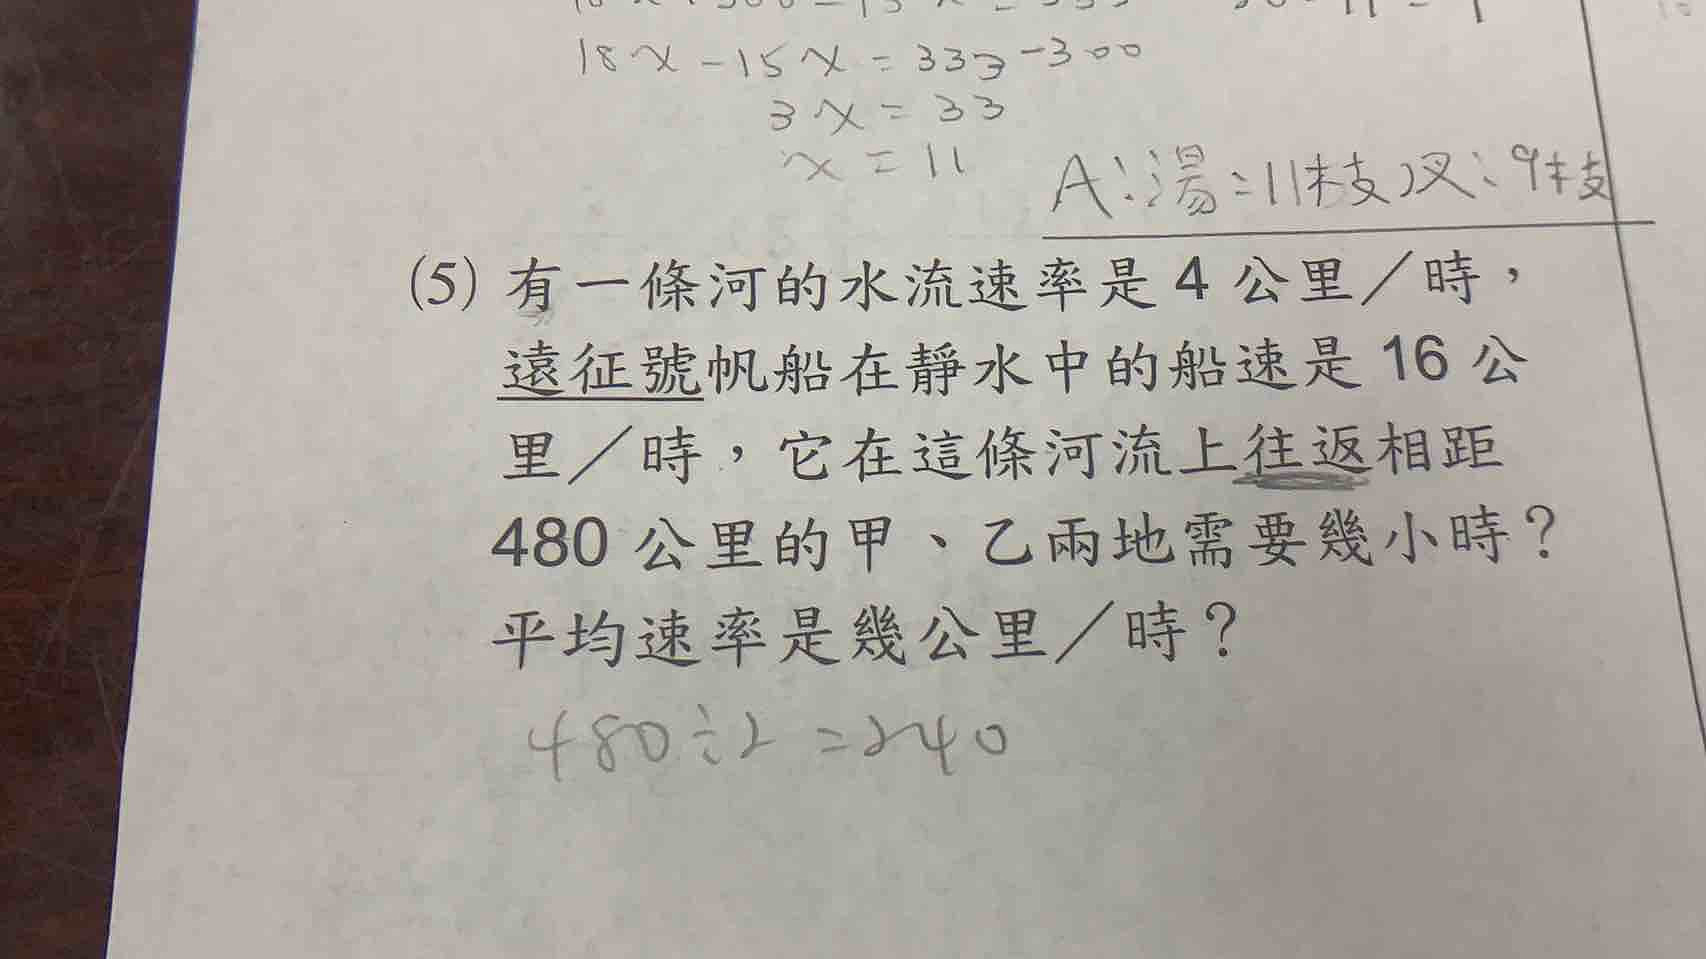 18x-15x=333-300
3x=33
x=11
A:湯:11枝叉:9枝
(5)有一條河的水流速率是4公里/時,
遠征號帆船在靜水中的船速是16公
里/時,它在這條河流上往返相距
480公里的甲、乙兩地需要幾小時?
平均速率是幾公里/時?
480÷2=240